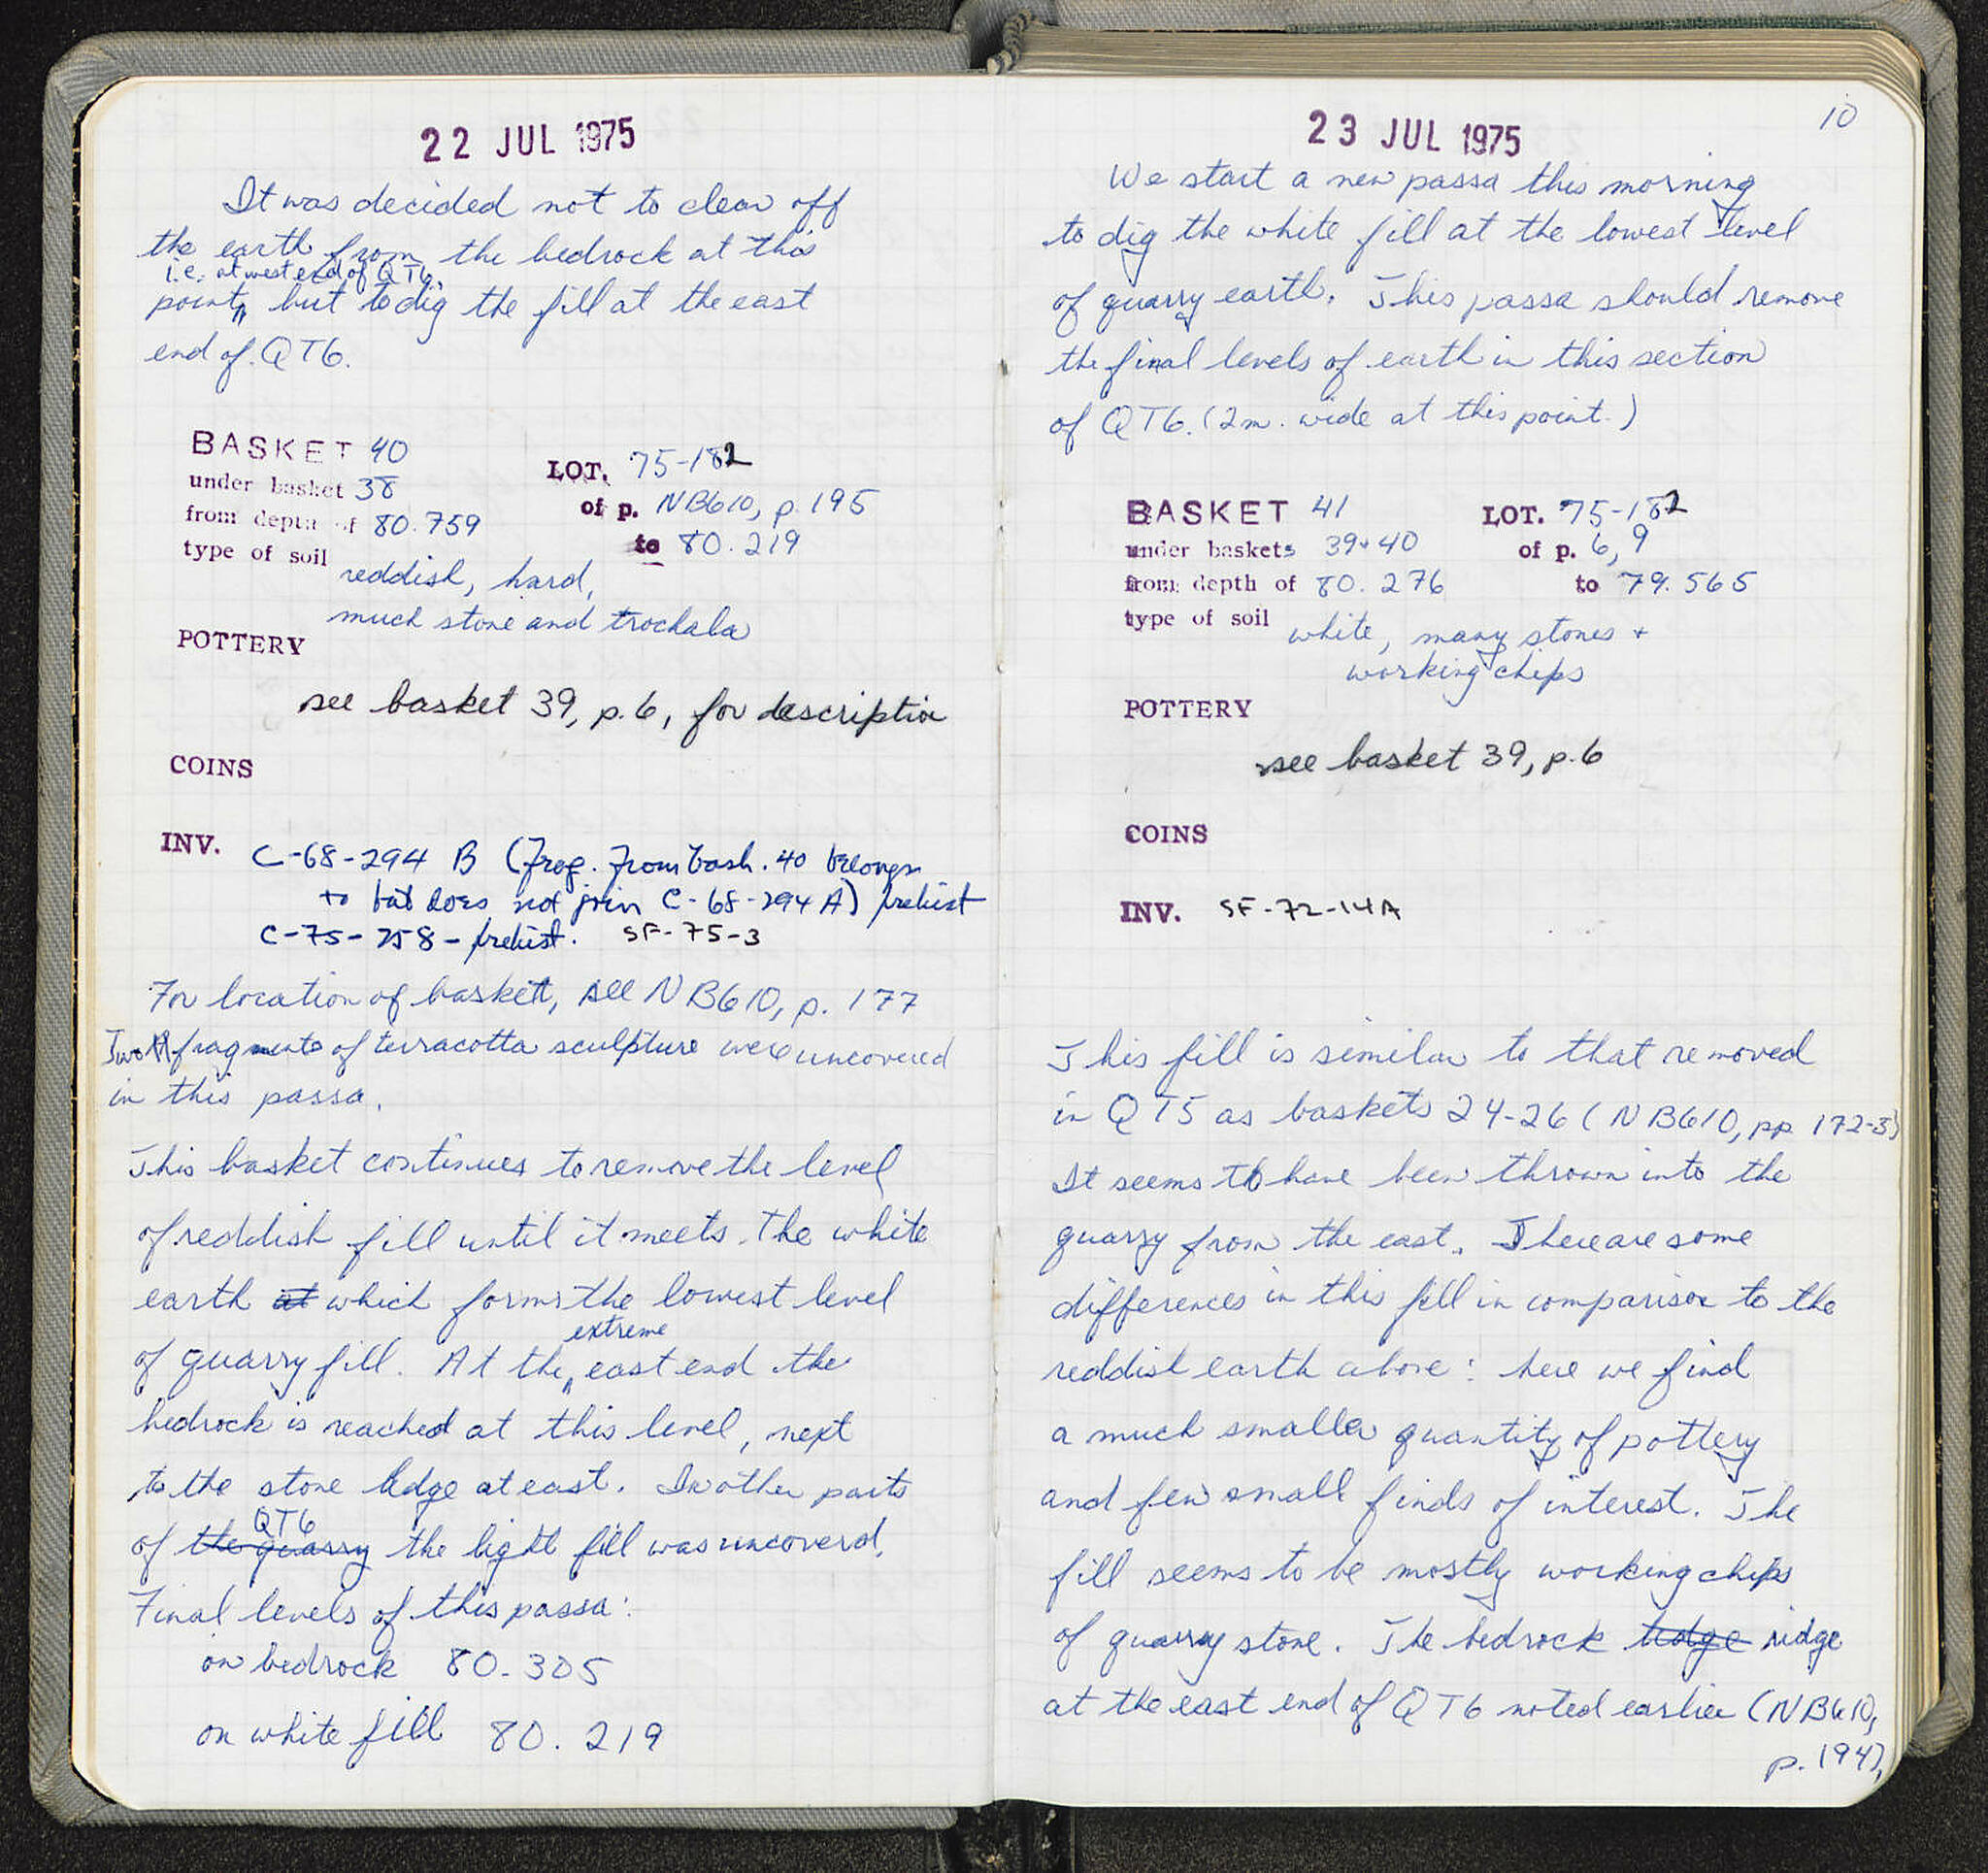 22 JUL 1975
It was decided not to clear off
the earth from the bedrock at this
i.e. at west end of QT6,
point, but to dig the fill at the east
end of QT6.
BASKET 40
LOT. 75-182
under basket 38
of p. NB610, p. 195
from depth of 80.759
to 80.219
type of soil reddish, hard,
much stone and trochala
POTTERY
see basket 39, p.6, for description
COINS
INV. C-68-294 B (frag. from bask. 40 belongs
to but does not join C-68-294 A) prehist
C-75-258 - prehist. SF-75-3
For location of basket, see NB610, p. 177
Two fragments of terracotta sculpture were uncovered
in this passa.
This basket continues to remove the level
of reddish fill until it meets the white
earth at which forms the lowest level
extreme
of quarry fill. At the east end the
bedrock is reached at this level, next
to the stone ledge at east. In other parts
QT6
of the quarry the light fill was uncoverd.
Final levels of this passa:
on bedrock 80.305
on white fill 80.219
10
23 JUL 1975
We start a new passa this morning
to dig the white fill at the lowest level
of quarry earth. This passa should remove
the final levels of earth in this section
of QT6. (2m. wide at this point.)
BASKET 41
LOT. 75-182
under baskets 39+40
of p. 6, 9
from depth of 80.276
to 79.565
type of soil white, many stones +
working chips
POTTERY
see basket 39, p.6
COINS
INV. SF-72-14A
This fill is similar to that removed
in QT5 as baskets 24-26 (NB610, pp 172-3)
It seems to have been thrown into the
quarry from the east. There are some
differences in this fill in comparison to the
reddish earth above: here we find
a much smaller quantity of pottery
and few small finds of interest. The
fill seems to be mostly working chips
of quarry stone. The bedrock ledge ridge
at the east end of QT6 noted earlier (NB610,
p. 194),